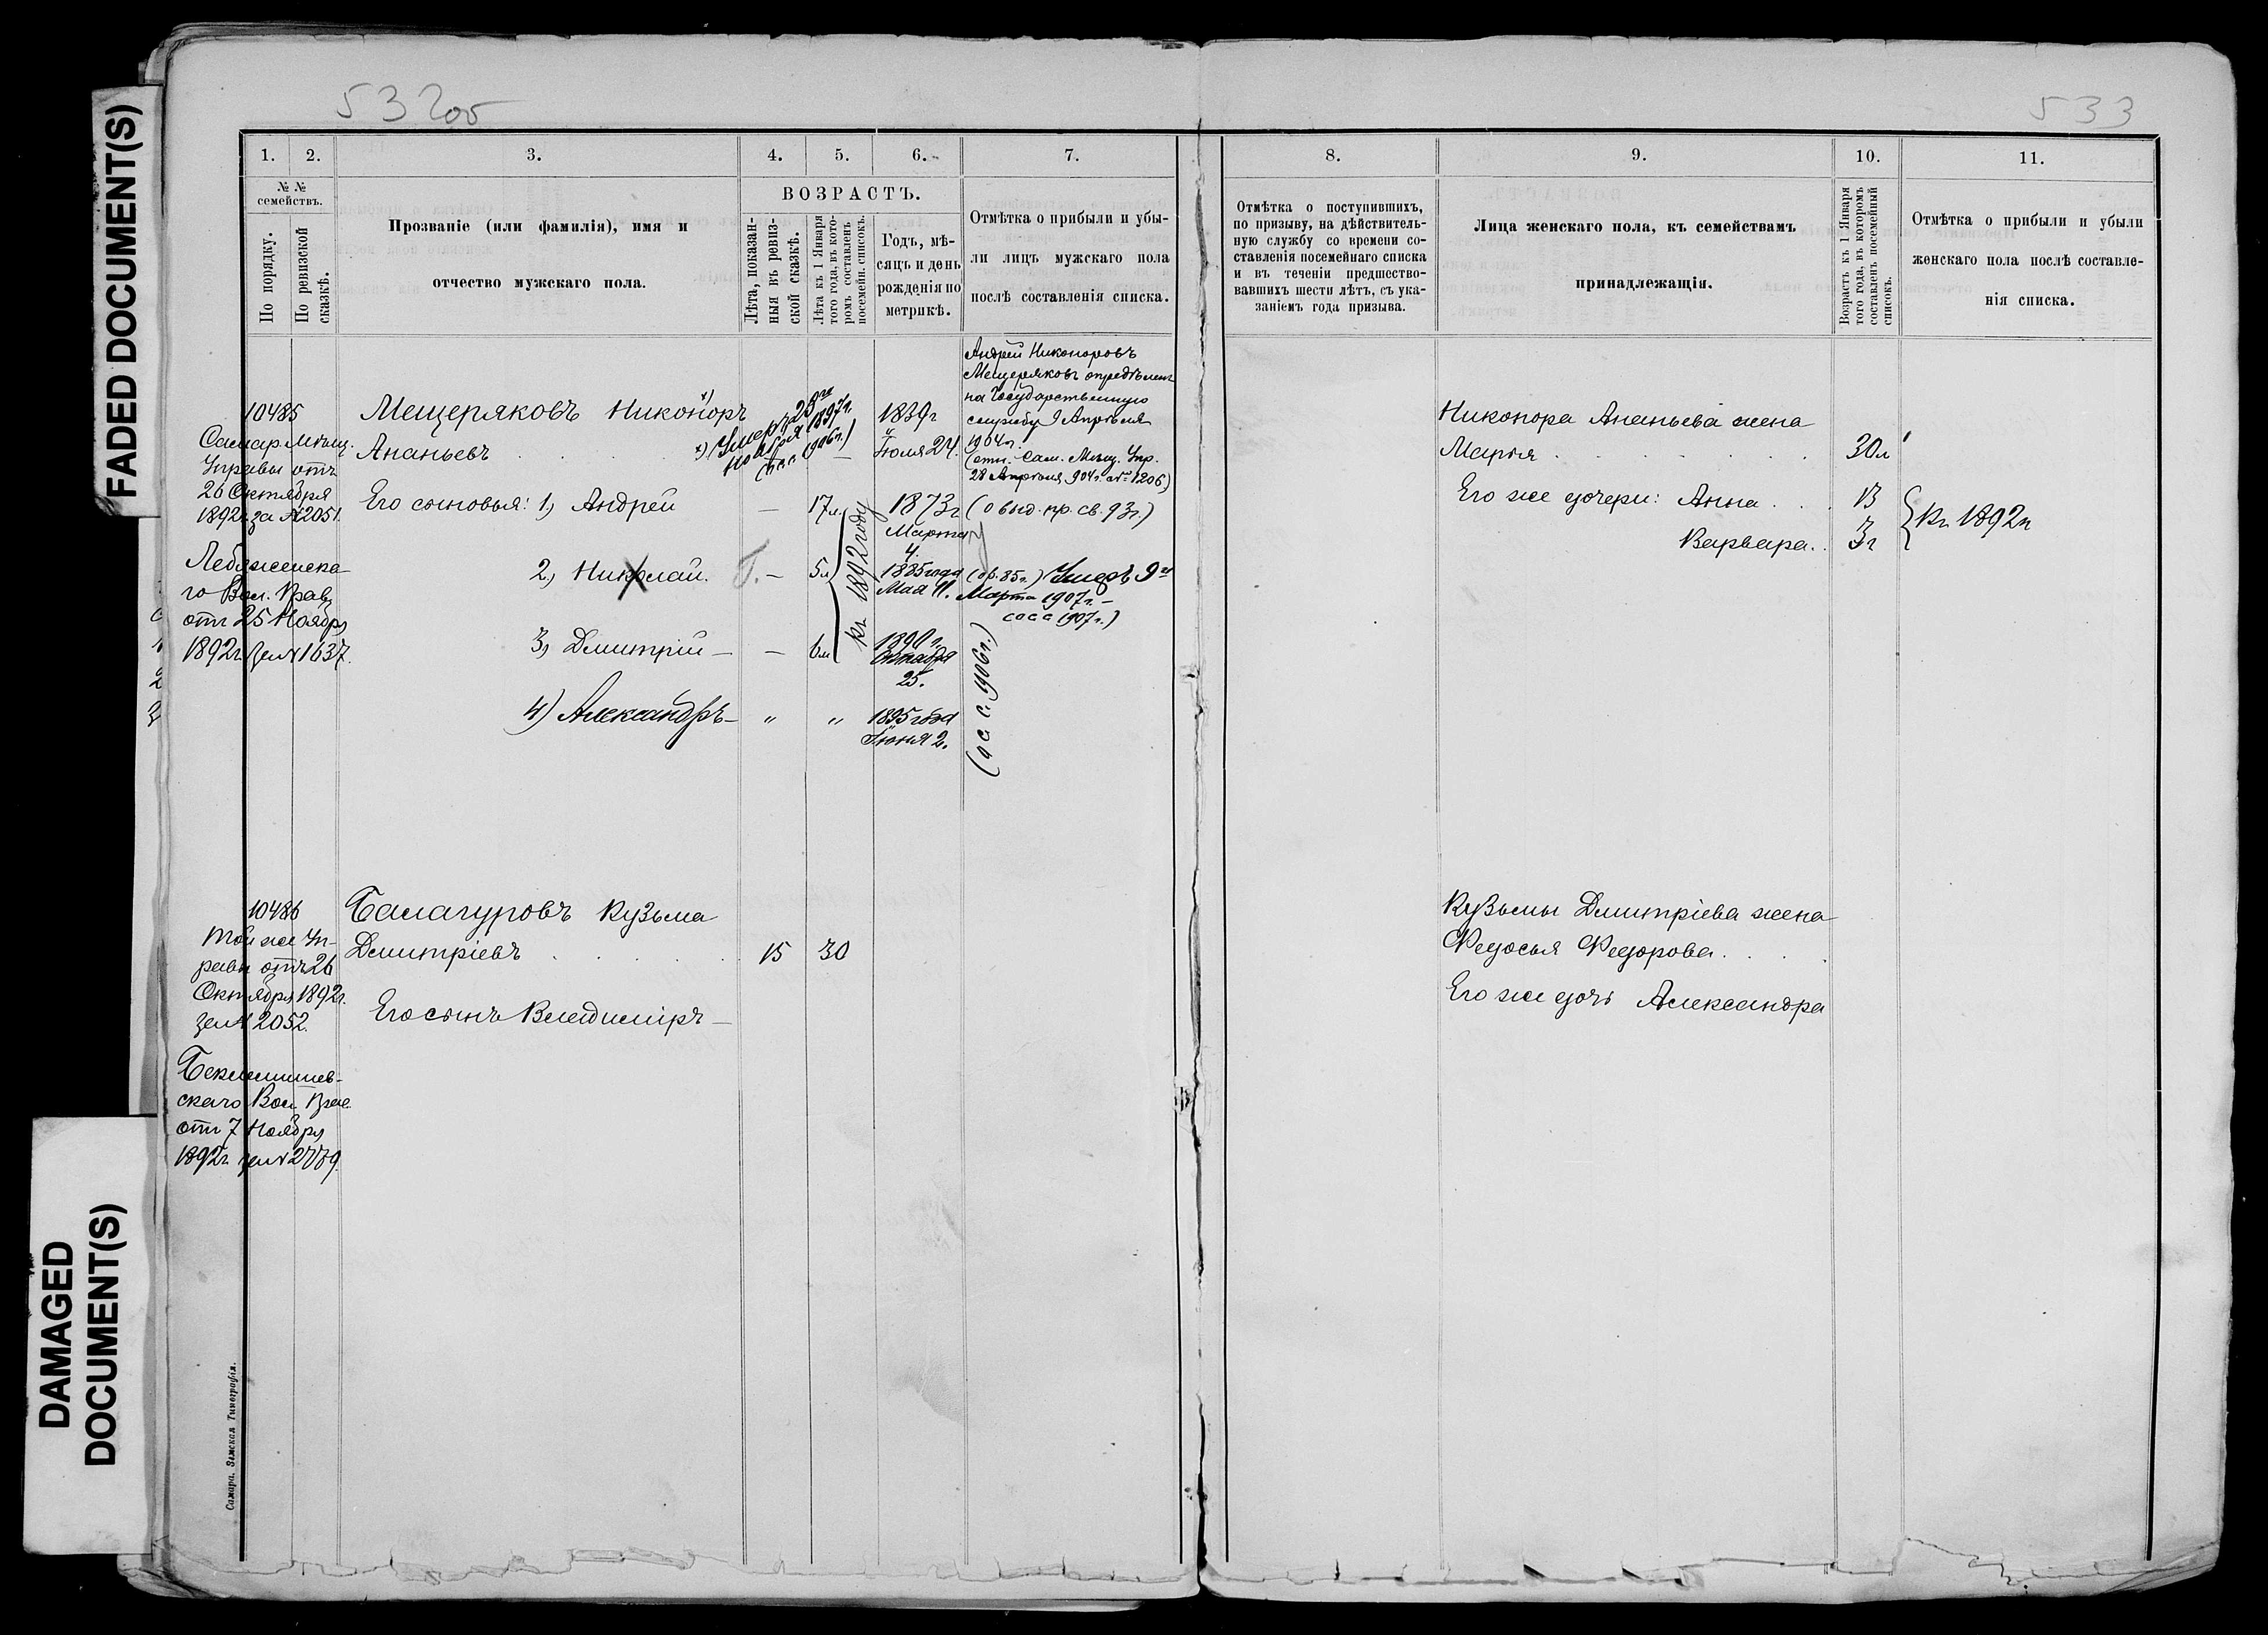 FADED DOCUMENT(S)
DAMAGED
DOCUMENT(S)
532об
533
1.
2.
3.
4.
5.
6.
7.
№ №
семействъ.
По порядку.
По ревизской
сказкѣ.
Прозваніе (или фамилія), имя и
отчество мужскаго пола.
ВОЗРАСТЪ.
Лѣта, показан-
ныя въ ревиз-
ской сказкѣ.
Лѣта къ 1 Января
того года, въ кото-
ромъ составленъ
посемейн. списокъ.
Годъ, мѣ-
сяцъ и день
рожденія по
метрикѣ.
Отмѣтка о прибыли и убы-
ли лицъ мужскаго пола
послѣ составленія списка.
10485
Самар. Мѣщ.
Управы отъ
26 Октября
1892г. за №2051.
Лебяженска-
го Вол. Прав.
отъ 25 Ноября
1892г. за №1637.
Мещеряковъ Никоноръ
Ананьевъ
Умеръ 25го
Ноября 1897г.
1839г
Іюля 24.
Андрей Никоноровъ
Мещеряковъ опредѣленъ
на Государственную
службу 9 Апрѣля
1904г.
(отн. Сам. Мѣщ. Упр.
28 Апрѣля 904г. № 1206)
Его сыновья: 1) Андрей — 17л. 1873г
Марта
4.
(о выд. пр. св. 93г.)
2) Николай. — 5л 1885 года
Мая 11.
Умеръ 9го
Марта 1907г. —
3) Дмитрій — — 6м 1890г.
25.
къ 1892 году
4) Александръ — " " 1895 года
Іюня 2.
10486
Той же Уп-
равы отъ 26
Октября 1892г.
за № 2052.
Беклемишев-
скаго Вол. Прав.
отъ 7 Ноября
1892г. за №2779.
Балагуровъ Кузьма
Дмитріевъ 15 30
Его сынъ Владиміръ —
Самара. Земская Типографія.
8.
9.
10.
11.
Отмѣтка о поступившихъ,
по призыву, на дѣйствитель-
ную службу со времени со-
ставленія посемейнаго списка
и въ теченіи предшество-
вавшихъ шести лѣтъ, съ ука-
заніемъ года призыва.
Лица женскаго пола, къ семействамъ
принадлежащія.
Возрастъ къ 1 Января
того года, въ которомъ
составленъ посемейный
списокъ.
Отмѣтка о прибыли и убыли
женскаго пола послѣ составле-
нія списка.
Никонора Ананьева жена
Марія 30л
Его же дочери: Анна 13
Варвара 3г
къ 1892г
Кузьмы Дмитріева жена
Федосья Федорова.
Его же дочь Александра